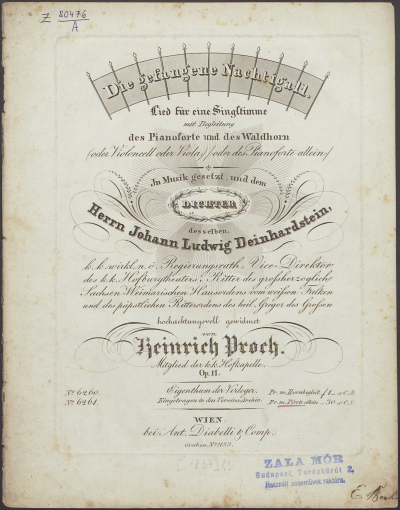 Z 80476
A
Die gefangene Nachtigall.
Lied für eine Singstimme
mit Begleitung
des Pianoforte und des Waldhorn
(oder Violoncell oder Viola) (oder des Pianoforte allein)
In Musik gesetzt, und dem
DICHTER
desselben,
Herrn Johann Ludwig Deinhardstein,
k. k. wirkl. n. ö. Regierungsrath, Vice-Direktor
des k. k. Hofburgtheaters, Ritter des großherzogliche
Sachsen-Weimarischen Hausordens vom weißen Falken
und des päpstlichen Ritterordens des heil. Gregor des Großen
hochachtungsvoll gewidmet
von
Heinrich Proch.
Mitglied der k. k. Hofkapelle.
Op. 11.
No. 6260. Eigenthum der Verleger. Pr. m. Hornbegleit f 1._ x C.M.
No. 6261. Eingetragen in das Vereins Archiv. Pr. m. Pfte allein _ 30 x C.M.
WIEN,
bei Ant. Diabelli & Comp.
Graben No. 1133.
[1837]
ZALA MÓR
Budapest, Terézkörút 2,
Használt zeneművek raktára.